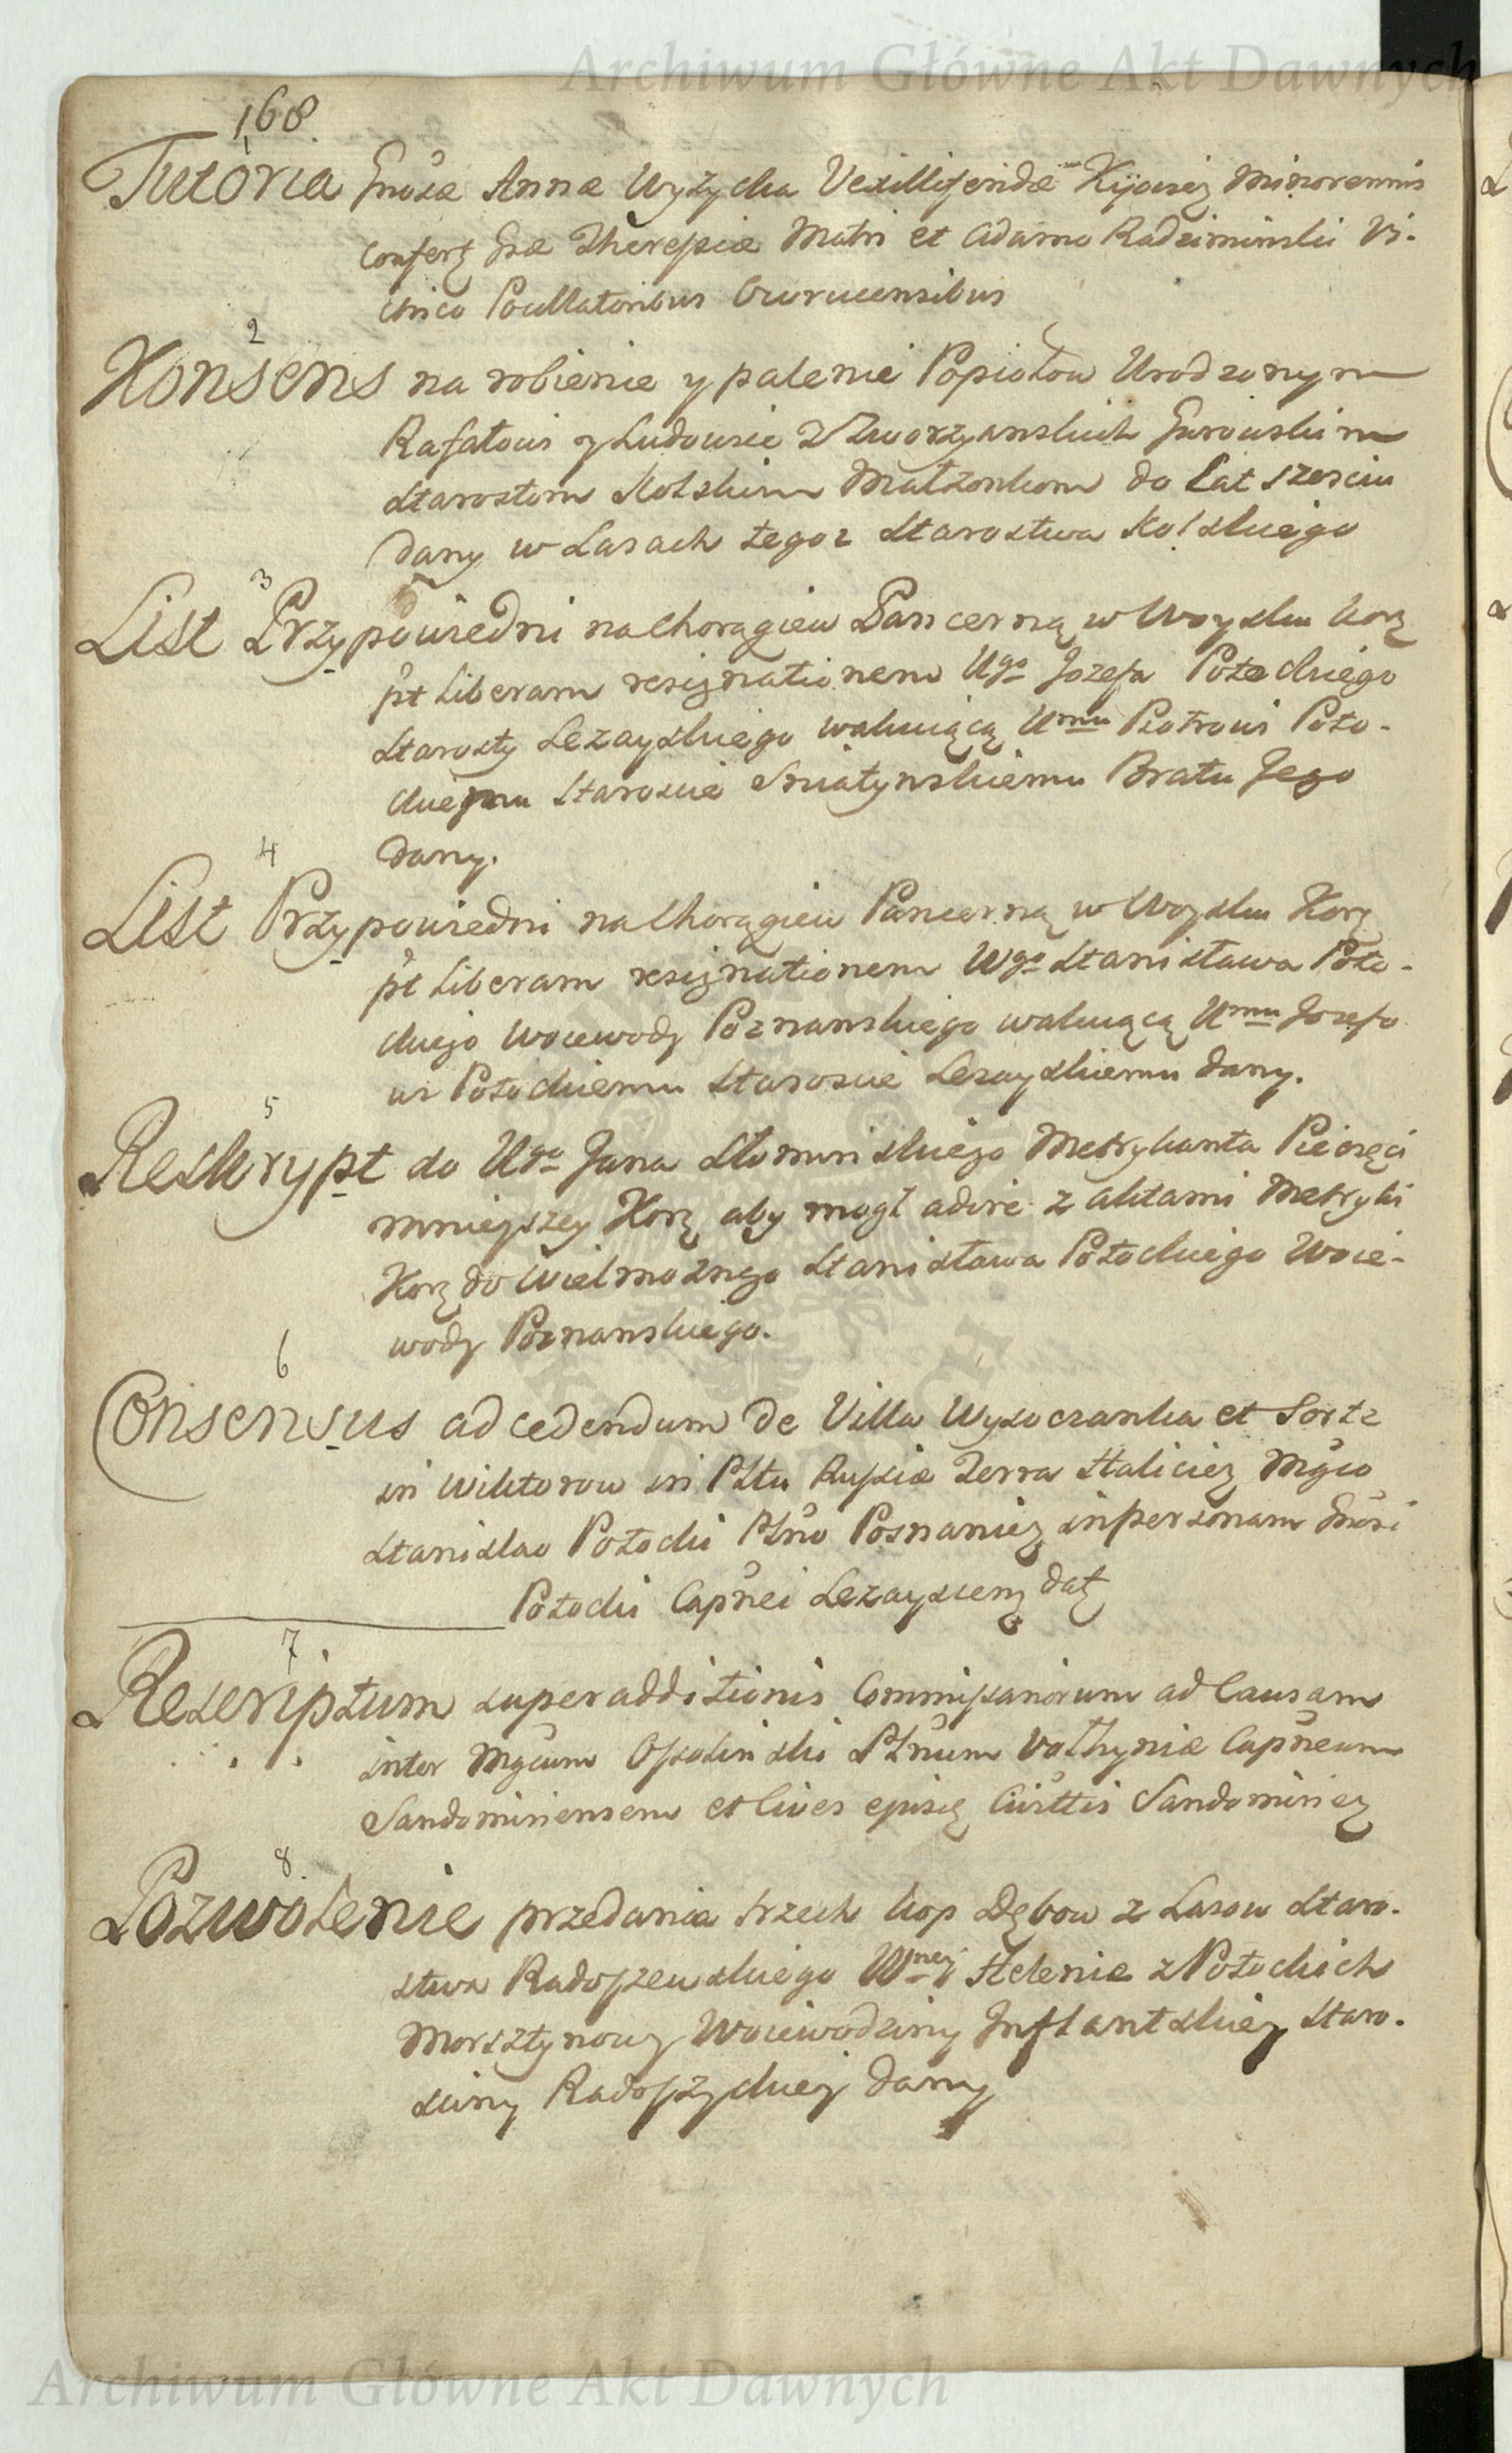 Archiwum Główne Akt Dawnych
168
1
Tutoria Gnosæ Annæ Wyżycka Vexilliferidæ Kijovieȝ Minorennis
conferȝ Gsæ Theresiæ Matri et Adamo Radziminski Vi-
trico Pocillatoribus Owrucensibus
2
Konsens na robienie y palenie Popiołow Urodzonym
Rafałowi y Ludowice z Tworzyanskich Gurowskim
Starostom Kolskim Małżonkom do Lat szesciu
Dany w Lasach tegoz Starostwa Kolskiego
3
List Przypowiedni na Chorągiew Pancerną w Woysku Korȝ
pt Liberam resignationem Ugo Jozefa Potockiego
Starosty Lezayskiego wakuiącą Umu Piotrowi Poto-
ckiemu Staroscie Sniatynskiemu Bratu Jego
Dany.
4
List Przypowiedni na Chorągiew Pancerną w Woysku Korȝ
pt Liberam resignationem Wgo Stanisława Poto-
ckiego Woiewody Poznanskiego wakuiącą Umu Jozefo
wi Potockiemu Staroscie Lezayskiemu Dany.
5
Reskrypt do Ugo Jana Słominskiego Metrykanta Pieczęci
mnieyszey Korȝ aby mogł adire z aktami Metryki
Korȝ do Wielmoznego Stanisława Potockiego Woie-
wody Poznanskiego.
6
Consensus ad cedendum de Villa Wysoczanka et Sorte
in Wiktorow in Pltu Russiæ Terra Halicieȝ Mgco
Stanislao Potocki Plno Posnanieȝ in personam Gnosi
Potocki Capnei Lezayscenȝ Datȝ
7
Rescriptum superadditionis Commissariorum ad Causam
inter Mgcum Ossolinski Plnum Vołhyniæ Capneum
Sandomiriensem et Cives ejusȝ Ciuttis Sandomirieȝ
8
Pozwolenie przedania trzech kop Dębow z Lasow Staro-
stwa Radoszewskiego Wney Helenie z Potockich
Morsztynowy Woiewodziny Inflantskiey Staro-
sciny Radoszyckiey Dany
Archiwum Główne Akt Dawnych